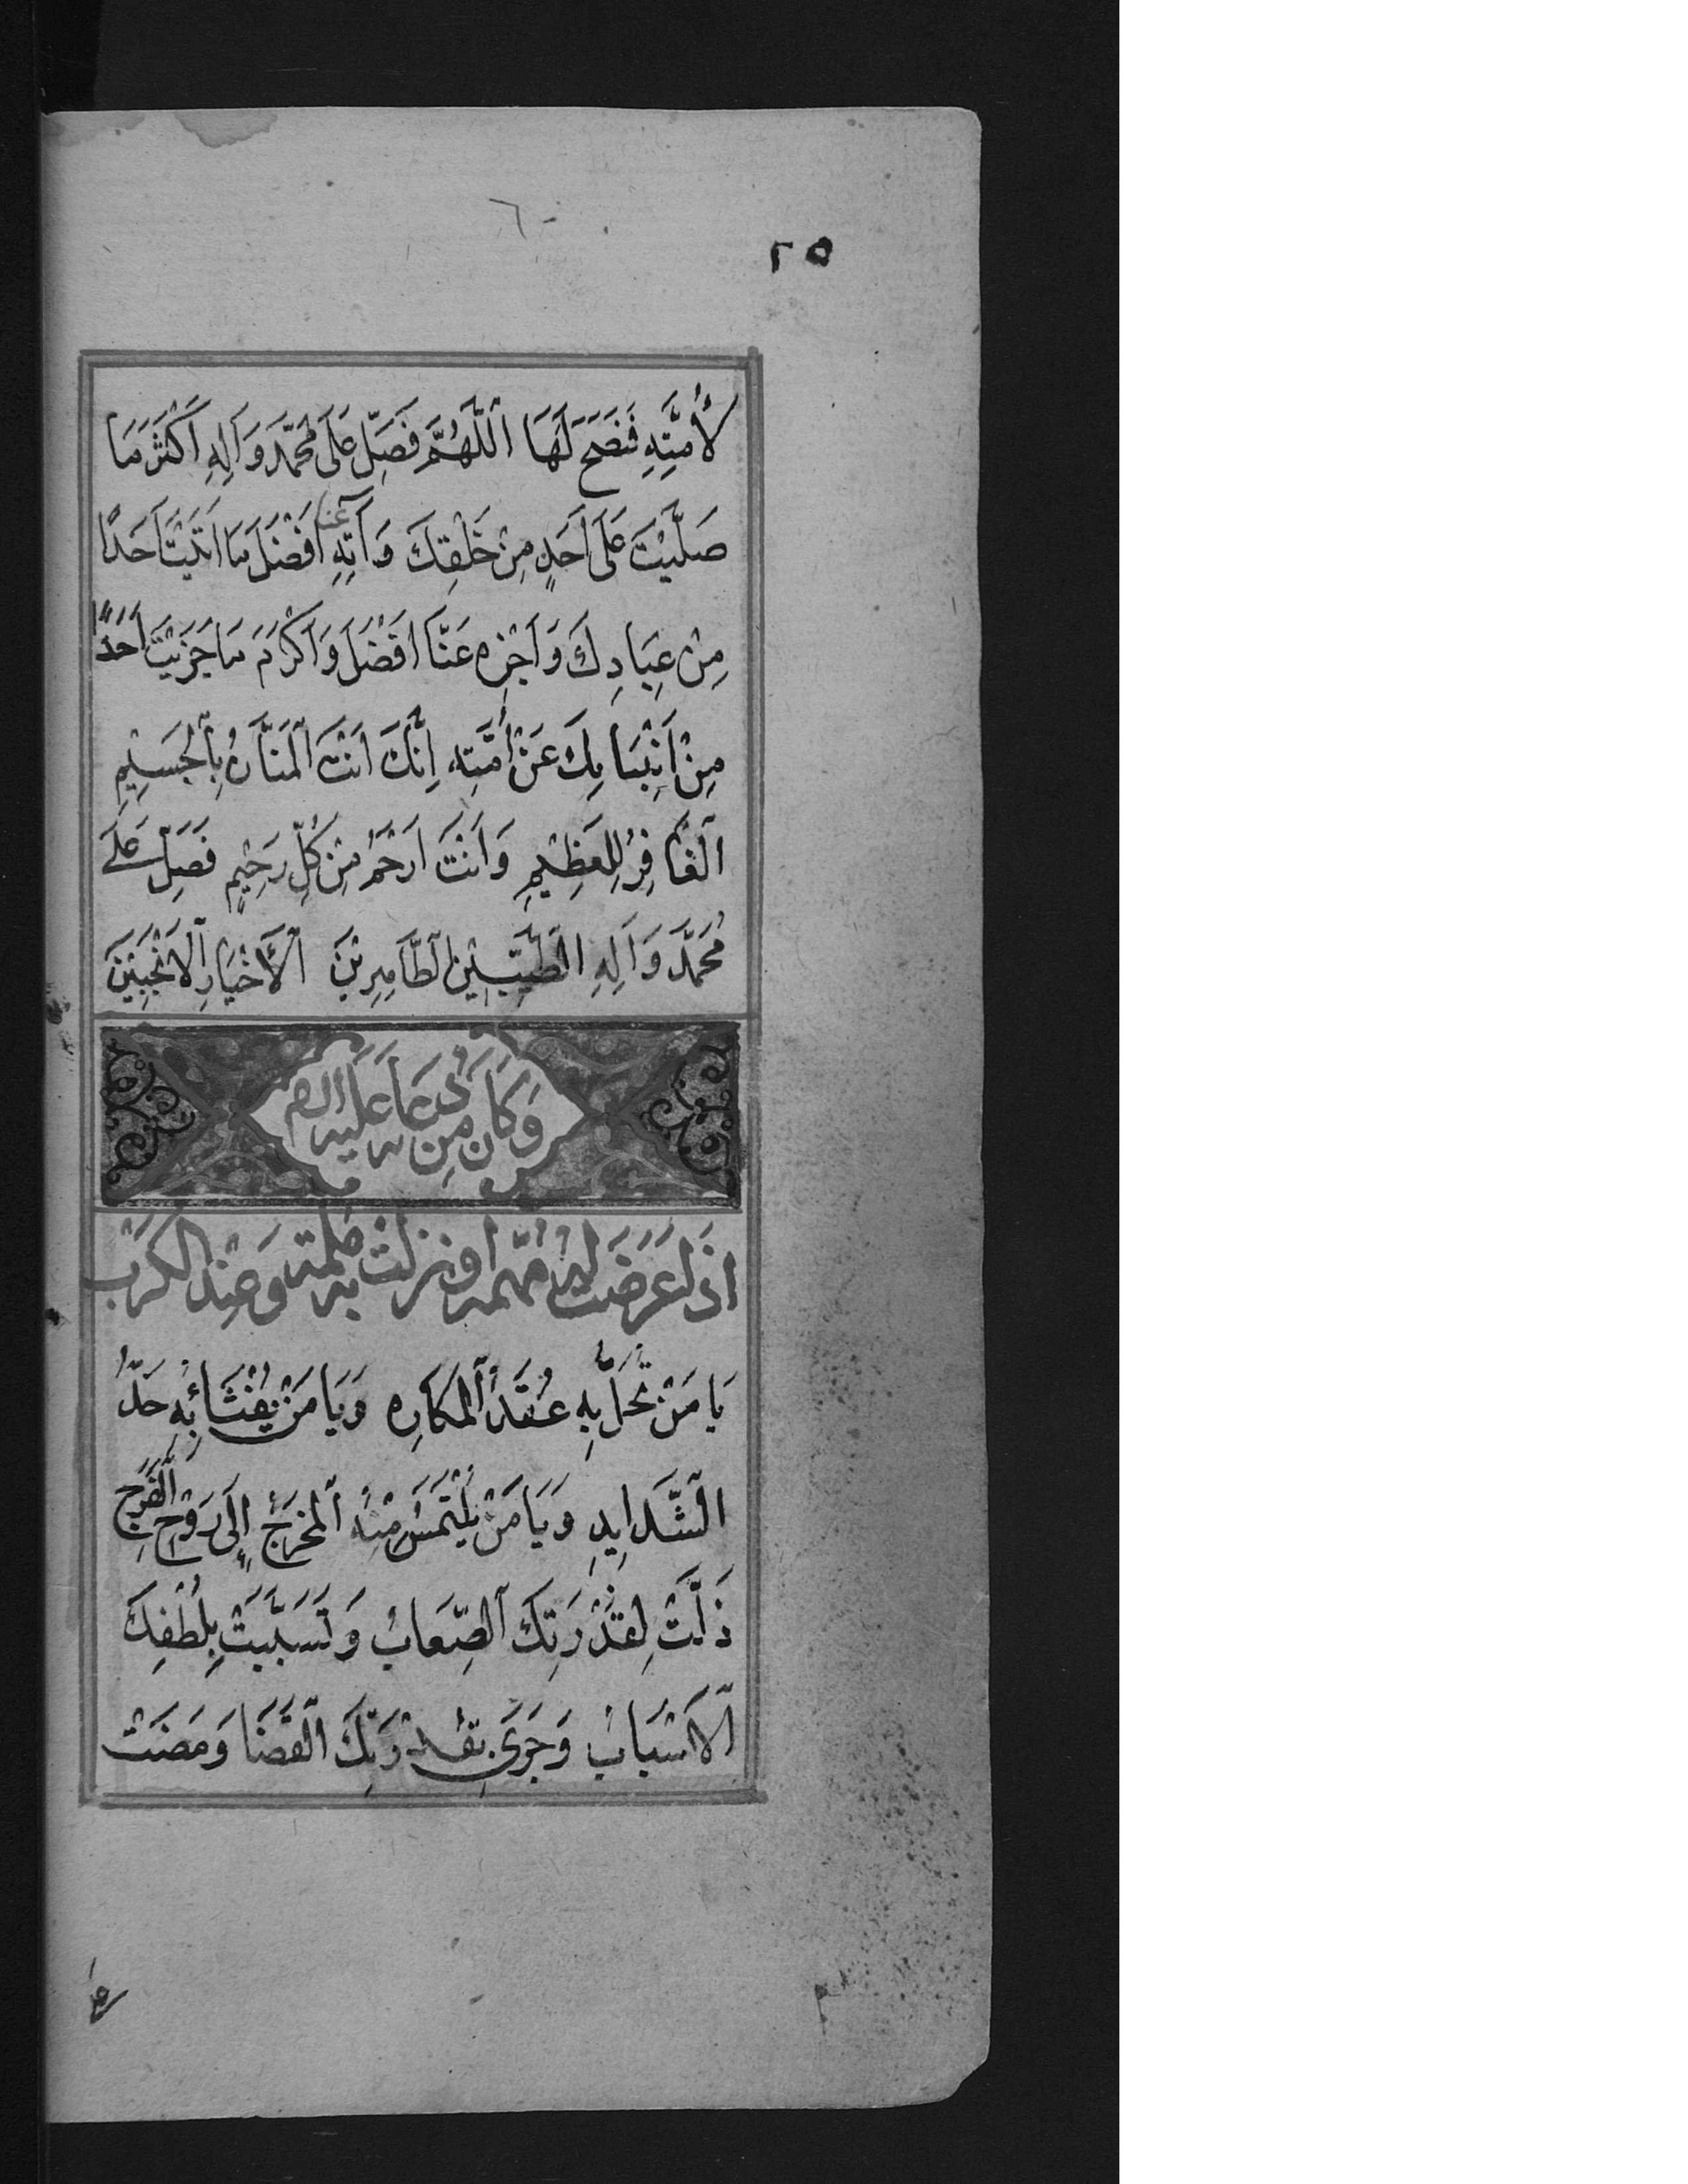 ٢٥
لِأُمَّتِهِ فَنَصَحَ لَهَا اَللّٰهُمَّ فَصَلِّ عَلَى مُحَمَّدٍ وَاٰلِهِ اَكْثَرَ مَا
صَلَّيْتَ عَلَى اَحَدٍ مِنْ خَلْقِكَ وَاٰتِهِ عَنَّا اَفْضَلَ مَا اٰتَيْتَ اَحَدًا
مِنْ عِبَادِكَ وَاَجْزِهِ عَنَّا اَفْضَلَ وَاَكْرَمَ مَا جَزَيْتَ اَحَدًا
مِنْ اَنْبِيَائِكَ عَنْ اُمَّتِهِ اِنَّكَ اَنْتَ الْمَنَّانُ بِالْجَسِيْمِ
الْغَافِرُ لِلْعَظِيْمِ وَاَنْتَ اَرْحَمُ مِنْ كُلِّ رَحِيْمٍ فَصَلِّ عَلَى
مُحَمَّدٍ وَاٰلِهِ الطَّيِّبِيْنَ الطَّاهِرِيْنَ الْأَخْيَارِ الْاَنْجَبِيْنَ
وَكَانَ مِنْ دُعَائِهِ عَلَيْهِ السلام
اِذَا عَرَضَتْ لَهُ مُهِمَّةٌ اَوْ نَزَلَتْ بِهِ مُلِمَّةٌ وَعِنْدَ الْكَرْبِ
يَا مَنْ تُحَلُّ بِهِ عُقَدُ الْمَكَارِهِ وَيَا مَنْ يُفْثَأُ بِهِ حَدُّ
الشَّدَايِدِ وَيَا مَنْ يُلْتَمَسُ مِنْهُ الْمَخْرَجُ إِلَى رَوْحِ الْفَرَجِ
ذَلَّتْ لِقُدْرَتِكَ الصِّعَابُ وَتَسَبَّبَتْ بِلُطْفِكَ
الْاَسْبَابُ وَجَرَى بِقُدْرَتِكَ الْقَضَا وَمَضَتْ